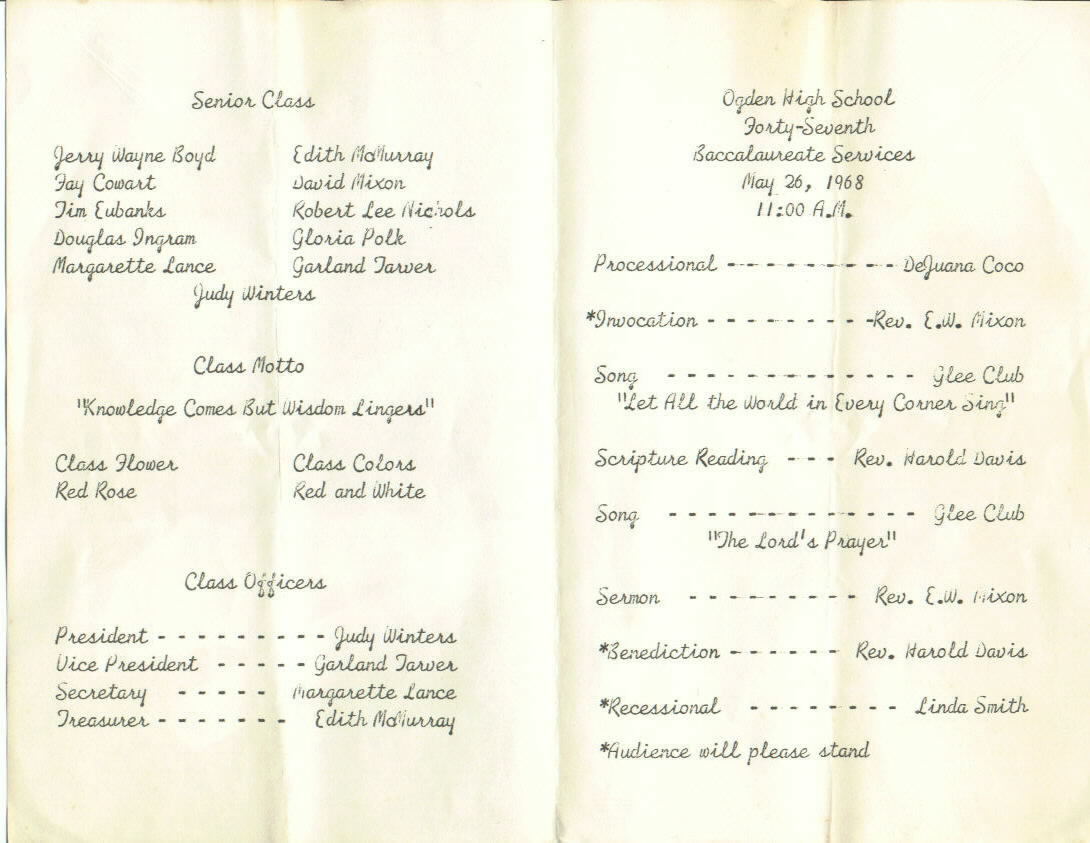 Senior Class
Jerry Wayne Boyd Edith McMurray
Fay Cowart David Mixon
Tim Eubanks Robert Lee Nichols
Douglas Ingram Gloria Polk
Margarette Lance Garland Tarver
Judy Winters
Class Motto
"Knowledge Comes But Wisdom Lingers"
Class Flower Class Colors
Red Rose Red and White
Class Officers
President - - - - - - - - - Judy Winters
Vice President - - - - - Garland Tarver
Secretary - - - - - Margarette Lance
Treasurer - - - - - - - Edith McMurray
Ogden High School
Forty-Seventh
Baccalaureate Services
May 26, 1968
11:00 A.M.
Processional - - - - - - - - - - DeJuana Coco
*Invocation - - - - - - - - - -Rev. E.W. Mixon
Song - - - - - - - - - - - - - Glee Club
"Let All the World in Every Corner Sing"
Scripture Reading - - - Rev. Harold Davis
Song - - - - - - - - - - - - - Glee Club
"The Lord's Prayer"
Sermon - - - - - - - - - Rev. E.W. Mixon
*Benediction - - - - - - Rev. Harold Davis
*Recessional - - - - - - - - Linda Smith
*Audience will please stand